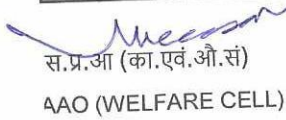 स.प्र.आ (का.एवं.औ.सं)
AAO (WELFARE CELL)